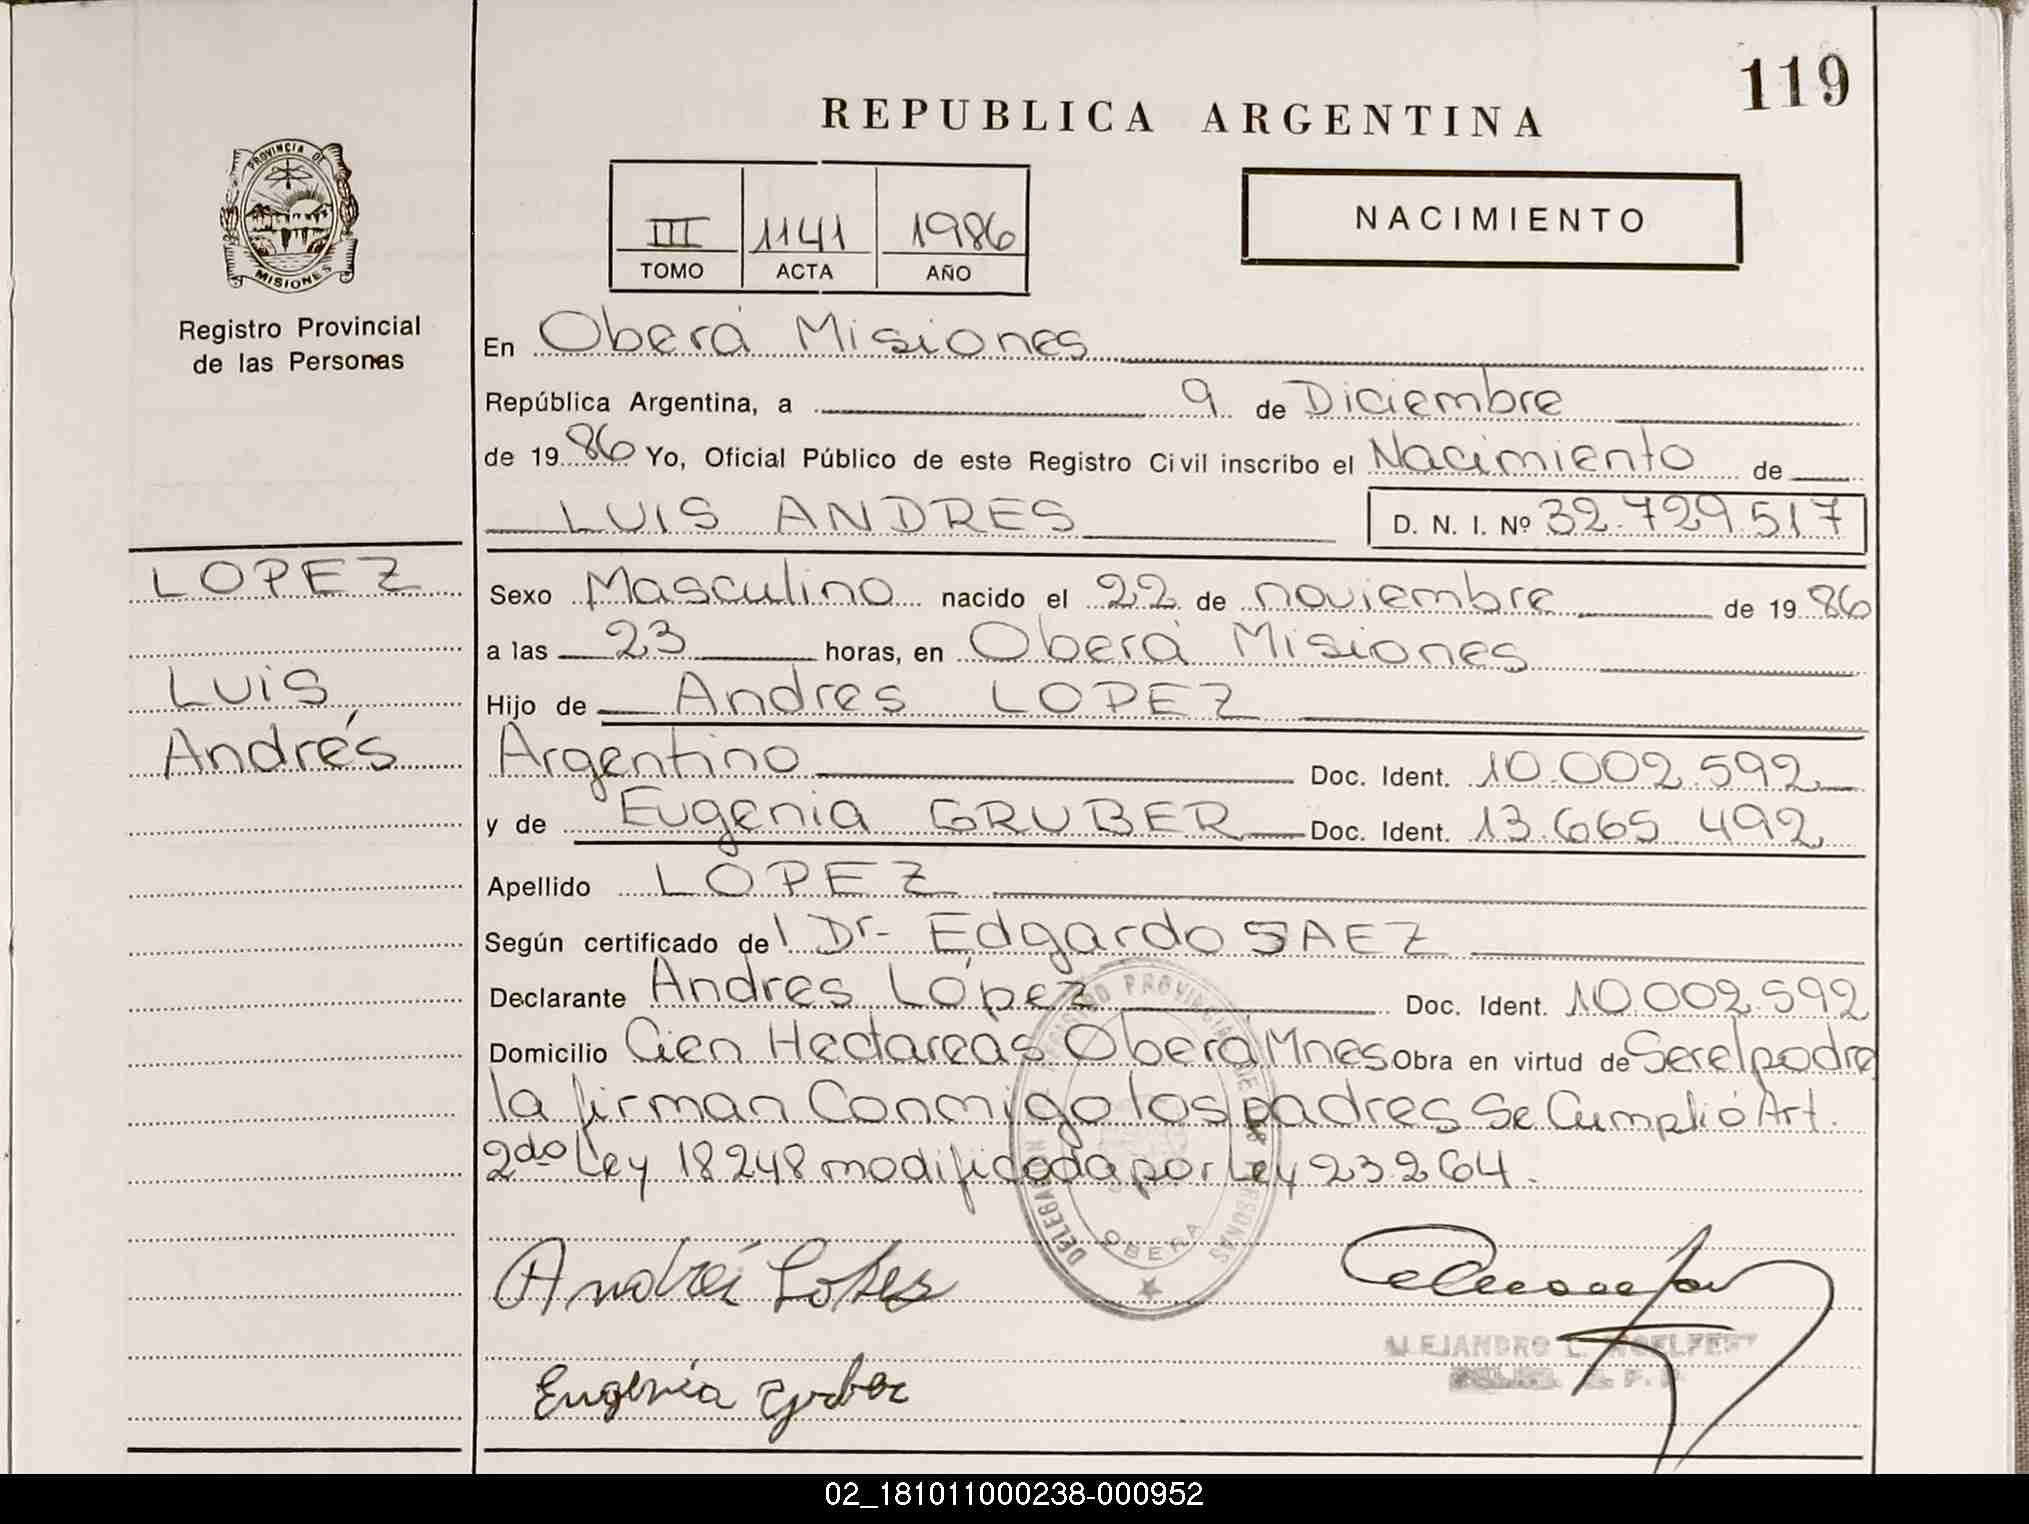 119
REPUBLICA ARGENTINA
PROVINCIA DE
MISIONES
Registro Provincial
de las Personas
III 1141 1986
TOMO ACTA AÑO
NACIMIENTO
En Oberá Misiones
República Argentina, a 9 de Diciembre
de 1986 Yo, Oficial Público de este Registro Civil inscribo el Nacimiento de
LUIS ANDRES D. N. I. Nº 32.729.517
LOPEZ
Luis
Andrés
Sexo Masculino nacido el 22 de noviembre de 1986
a las 23 horas, en Oberá Misiones
Hijo de Andres LOPEZ
Argentino Doc. Ident. 10.002.592
y de Eugenia GRUBER Doc. Ident. 13.665.492
Apellido LOPEZ
Según certificado del Dr- Edgardo SAEZ
Declarante Andres López Doc. Ident. 10.002.592
Domicilio Cien Hectareas Oberá Mnes Obra en virtud de Ser el padre
la firman Conmigo los padres Se Cumplió Art.
2do Ley 18248 modificada por Ley 23264.
DELEGACION REGISTRO PROVINCIAL DE LAS PERSONAS
OBERA
Andrés Lopes
Eugenia Gruber
ALEJANDRO L.
02_181011000238-000952